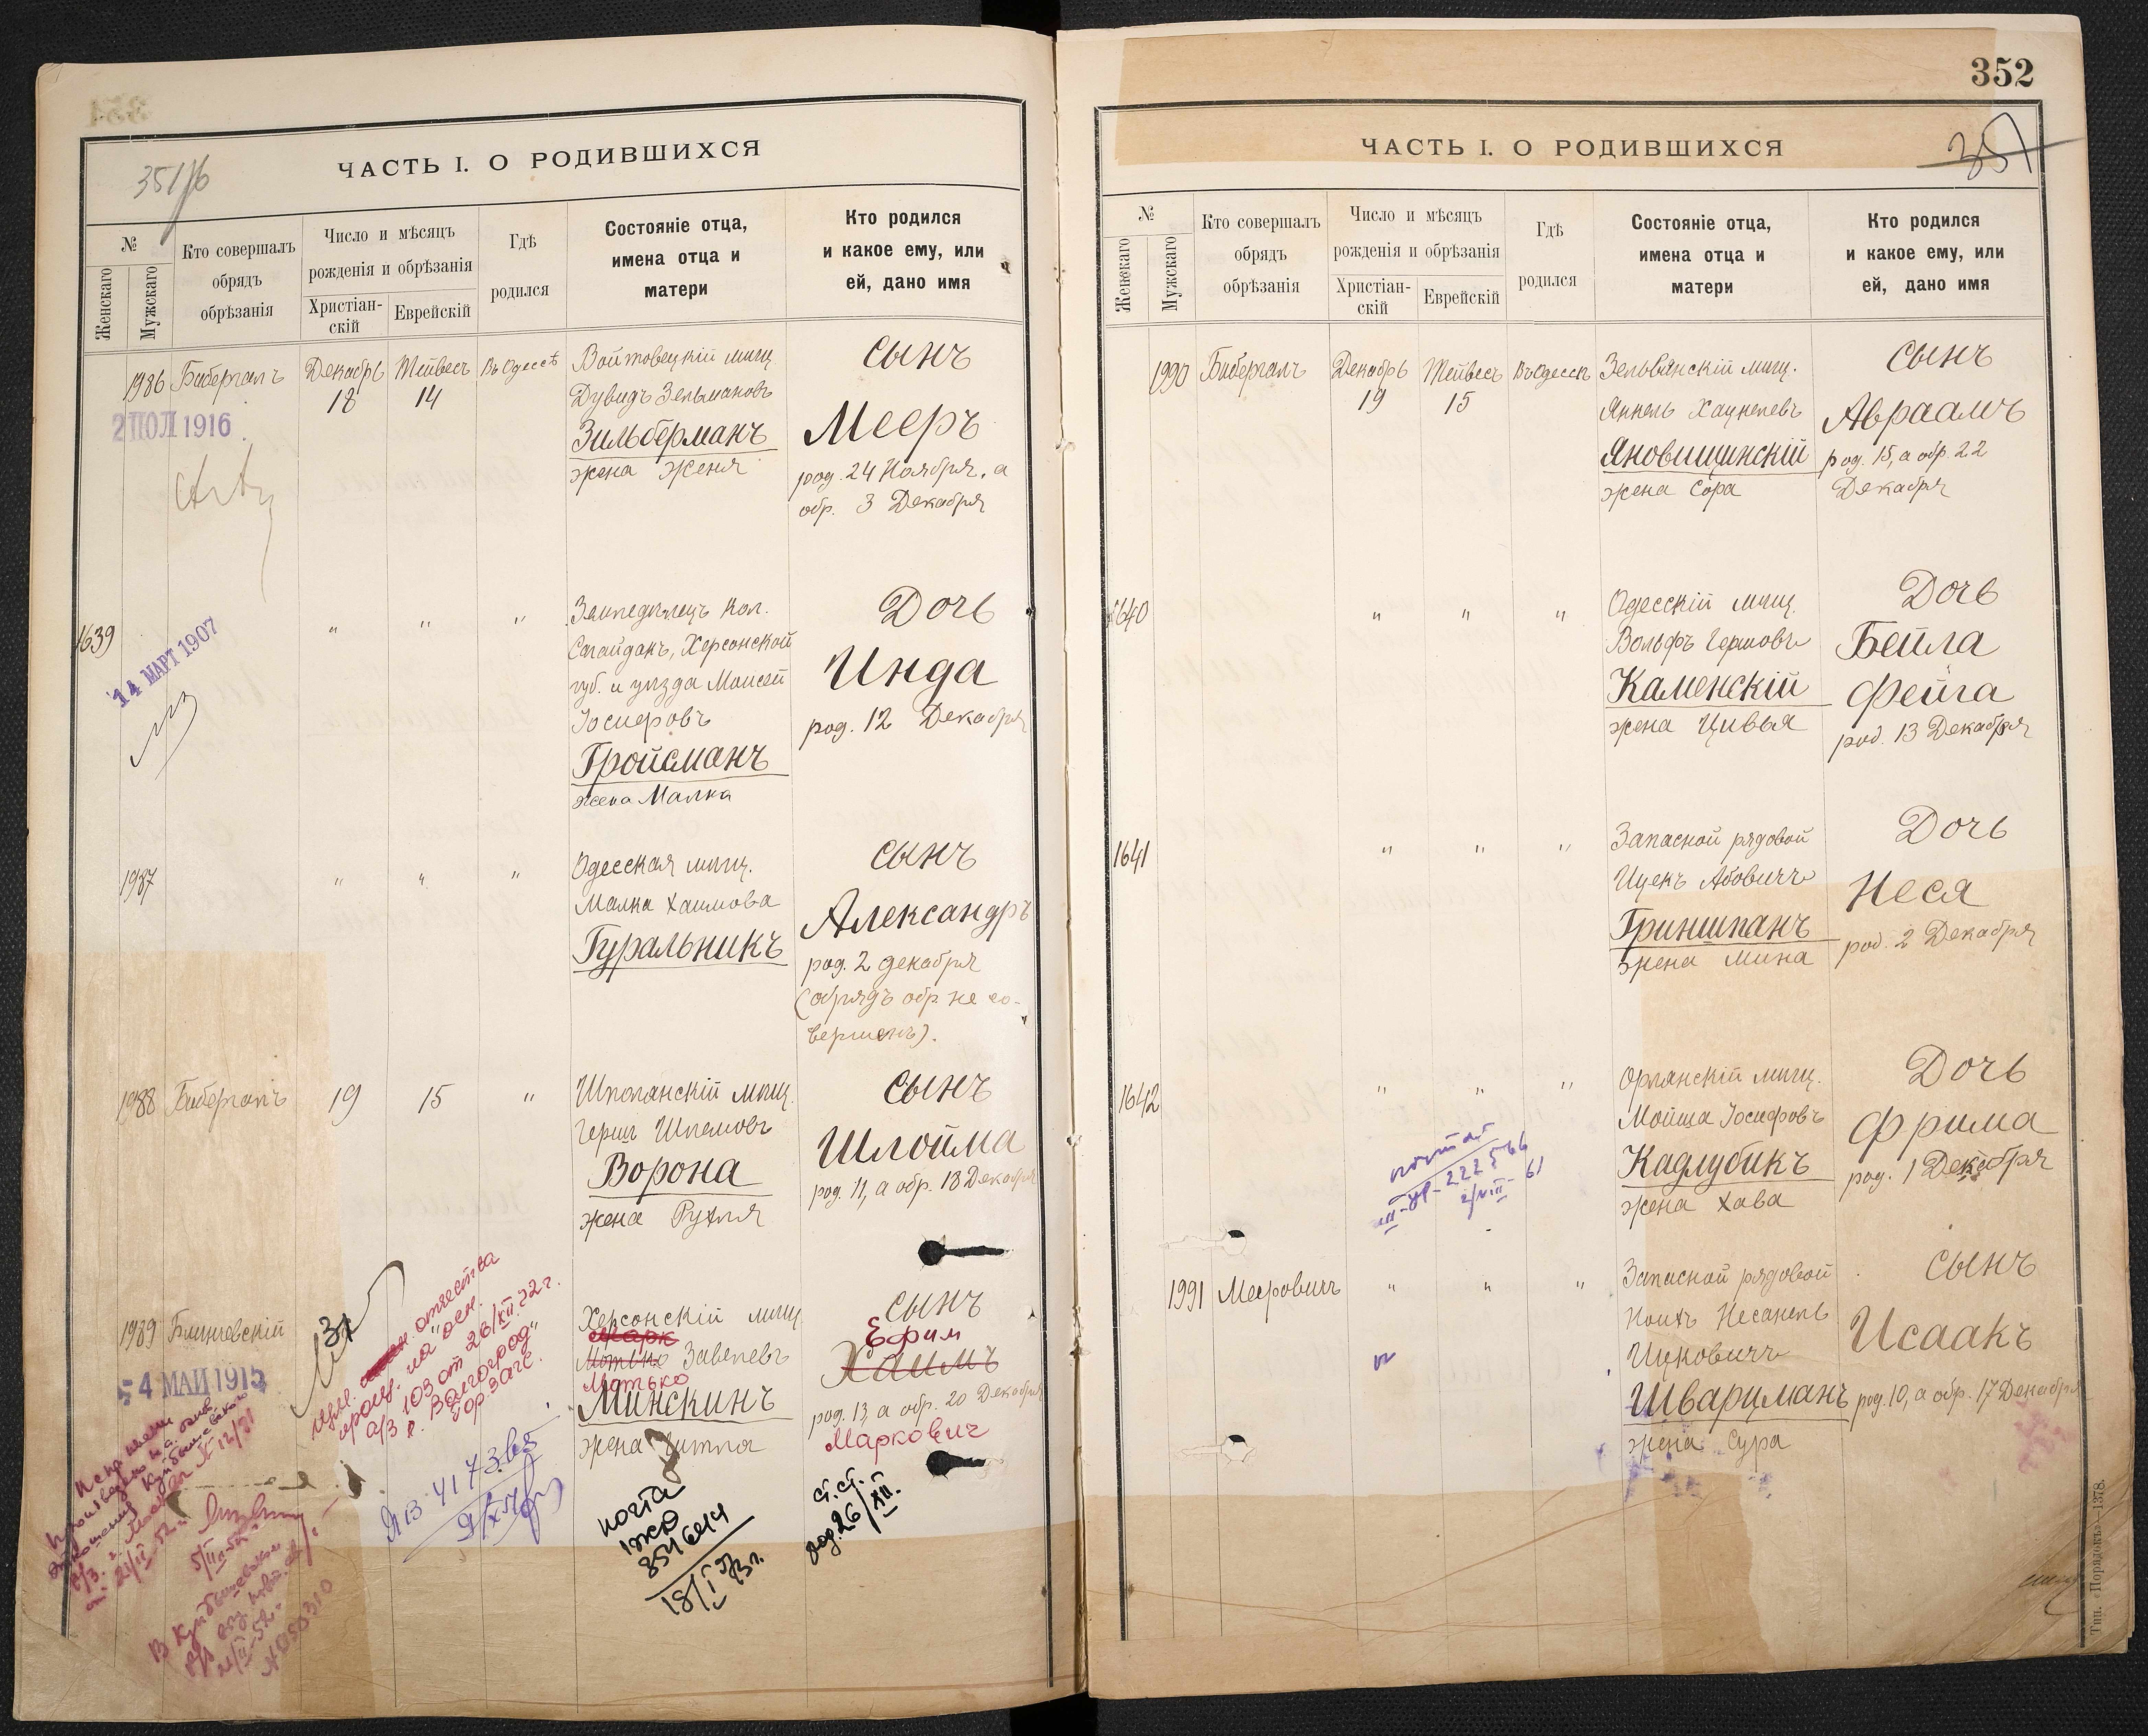 351/б
ЧАСТЬ I. О РОДИВШИХСЯ
№
Женскаго
Мужскаго
Кто совершалъ
обрядъ
обрѣзанія
Число и мѣсяцъ
рожденія и обрѣзанія
Христіан-
скій
Еврейскій
Гдѣ
родился
Состояніе отца,
имена отца и
матери
Кто родился
и какое ему, или
ей, дано имя
1986
Бибергалъ
Декабрь
18
Тейвесъ
14
Въ Одессѣ
Войтовецкій мѣщ.
Дувидъ Зельмановъ
Зильберманъ
жена Женя
сынъ
Мееръ
род. 24 Ноября, а
обр. 3 Декабря
2 ПОЛ 1916
1639
"
"
"
Землѣдѣлецъ кол.
Сагайдакъ, Херсонской
губ. и уѣзда Моисей
Іосифовъ
Гройсманъ
жена Малка
Дочь
Инда
род. 12 Декабря
14 МАРТ 1907
1987
"
"
"
Одесская мѣщ.
Малка Хаимова
Гуральникъ
сынъ
Александръ
род. 2 декабря
(обрядъ обр. не со-
вершенъ).
1988
Бибергалъ
19
15
"
Шполянскій мѣщ.
Гершъ Шлемовъ
Ворона
жена Рухля
сынъ
Шлойма
род. 11, а обр. 18 Декабря
1989
Блишевскій
Херсонскій мѣщ.
Марк
Мотько Завелевъ
Мотько
Минскинъ
жена Гитла
сынъ
Ефим
Хаимъ
род. 13, а обр. 20 Декабря
Маркович
4 МАЙ 1915
отчества
а/з 103 от 26/XII 72 г.
г. Волгоград
гор. загс.
почта
1жю
18/I 73 г.
ст. ст.
род. 26/XII.
352
351
ЧАСТЬ I. О РОДИВШИХСЯ
№
Женскаго
Мужскаго
Кто совершалъ
обрядъ
обрѣзанія
Число и мѣсяцъ
рожденія и обрѣзанія
Христіан-
скій
Еврейскій
Гдѣ
родился
Состояніе отца,
имена отца и
матери
Кто родился
и какое ему, или
ей, дано имя
1990
Бибергалъ
Декабрь
19
Тейвесъ
15
Въ Одессѣ
Зельвянскій мѣщ.
Янкель Хацкелевъ
Яновищинскій
жена Сора
сынъ
Авраамъ
род. 15, а обр. 22
Декабря
1640
"
"
"
Одесскій мѣщ.
Вольфъ Гершовъ
Каменскій
жена Цивья
Дочь
Бейла
Фейга
род. 13 Декабря
1641
"
"
"
Запасной рядовой
Ицекъ Абовичъ
Гриншпанъ
жена Мина
Дочь
Неся
род. 2 Декабря
1642
"
"
"
Орлянскій мѣщ.
Мойша Іосифовъ
Кадлубикъ
жена Хава
Дочь
Фрима
род. 1 Декабря
1991
Мееровичъ
"
"
"
Запасной рядовой
Ноихъ Несанель
Ицковичъ
Шварцманъ
жена Сура
сынъ
Исаакъ
род. 10, а обр. 17 Декабря
Тип. «Порядокъ»—1378.